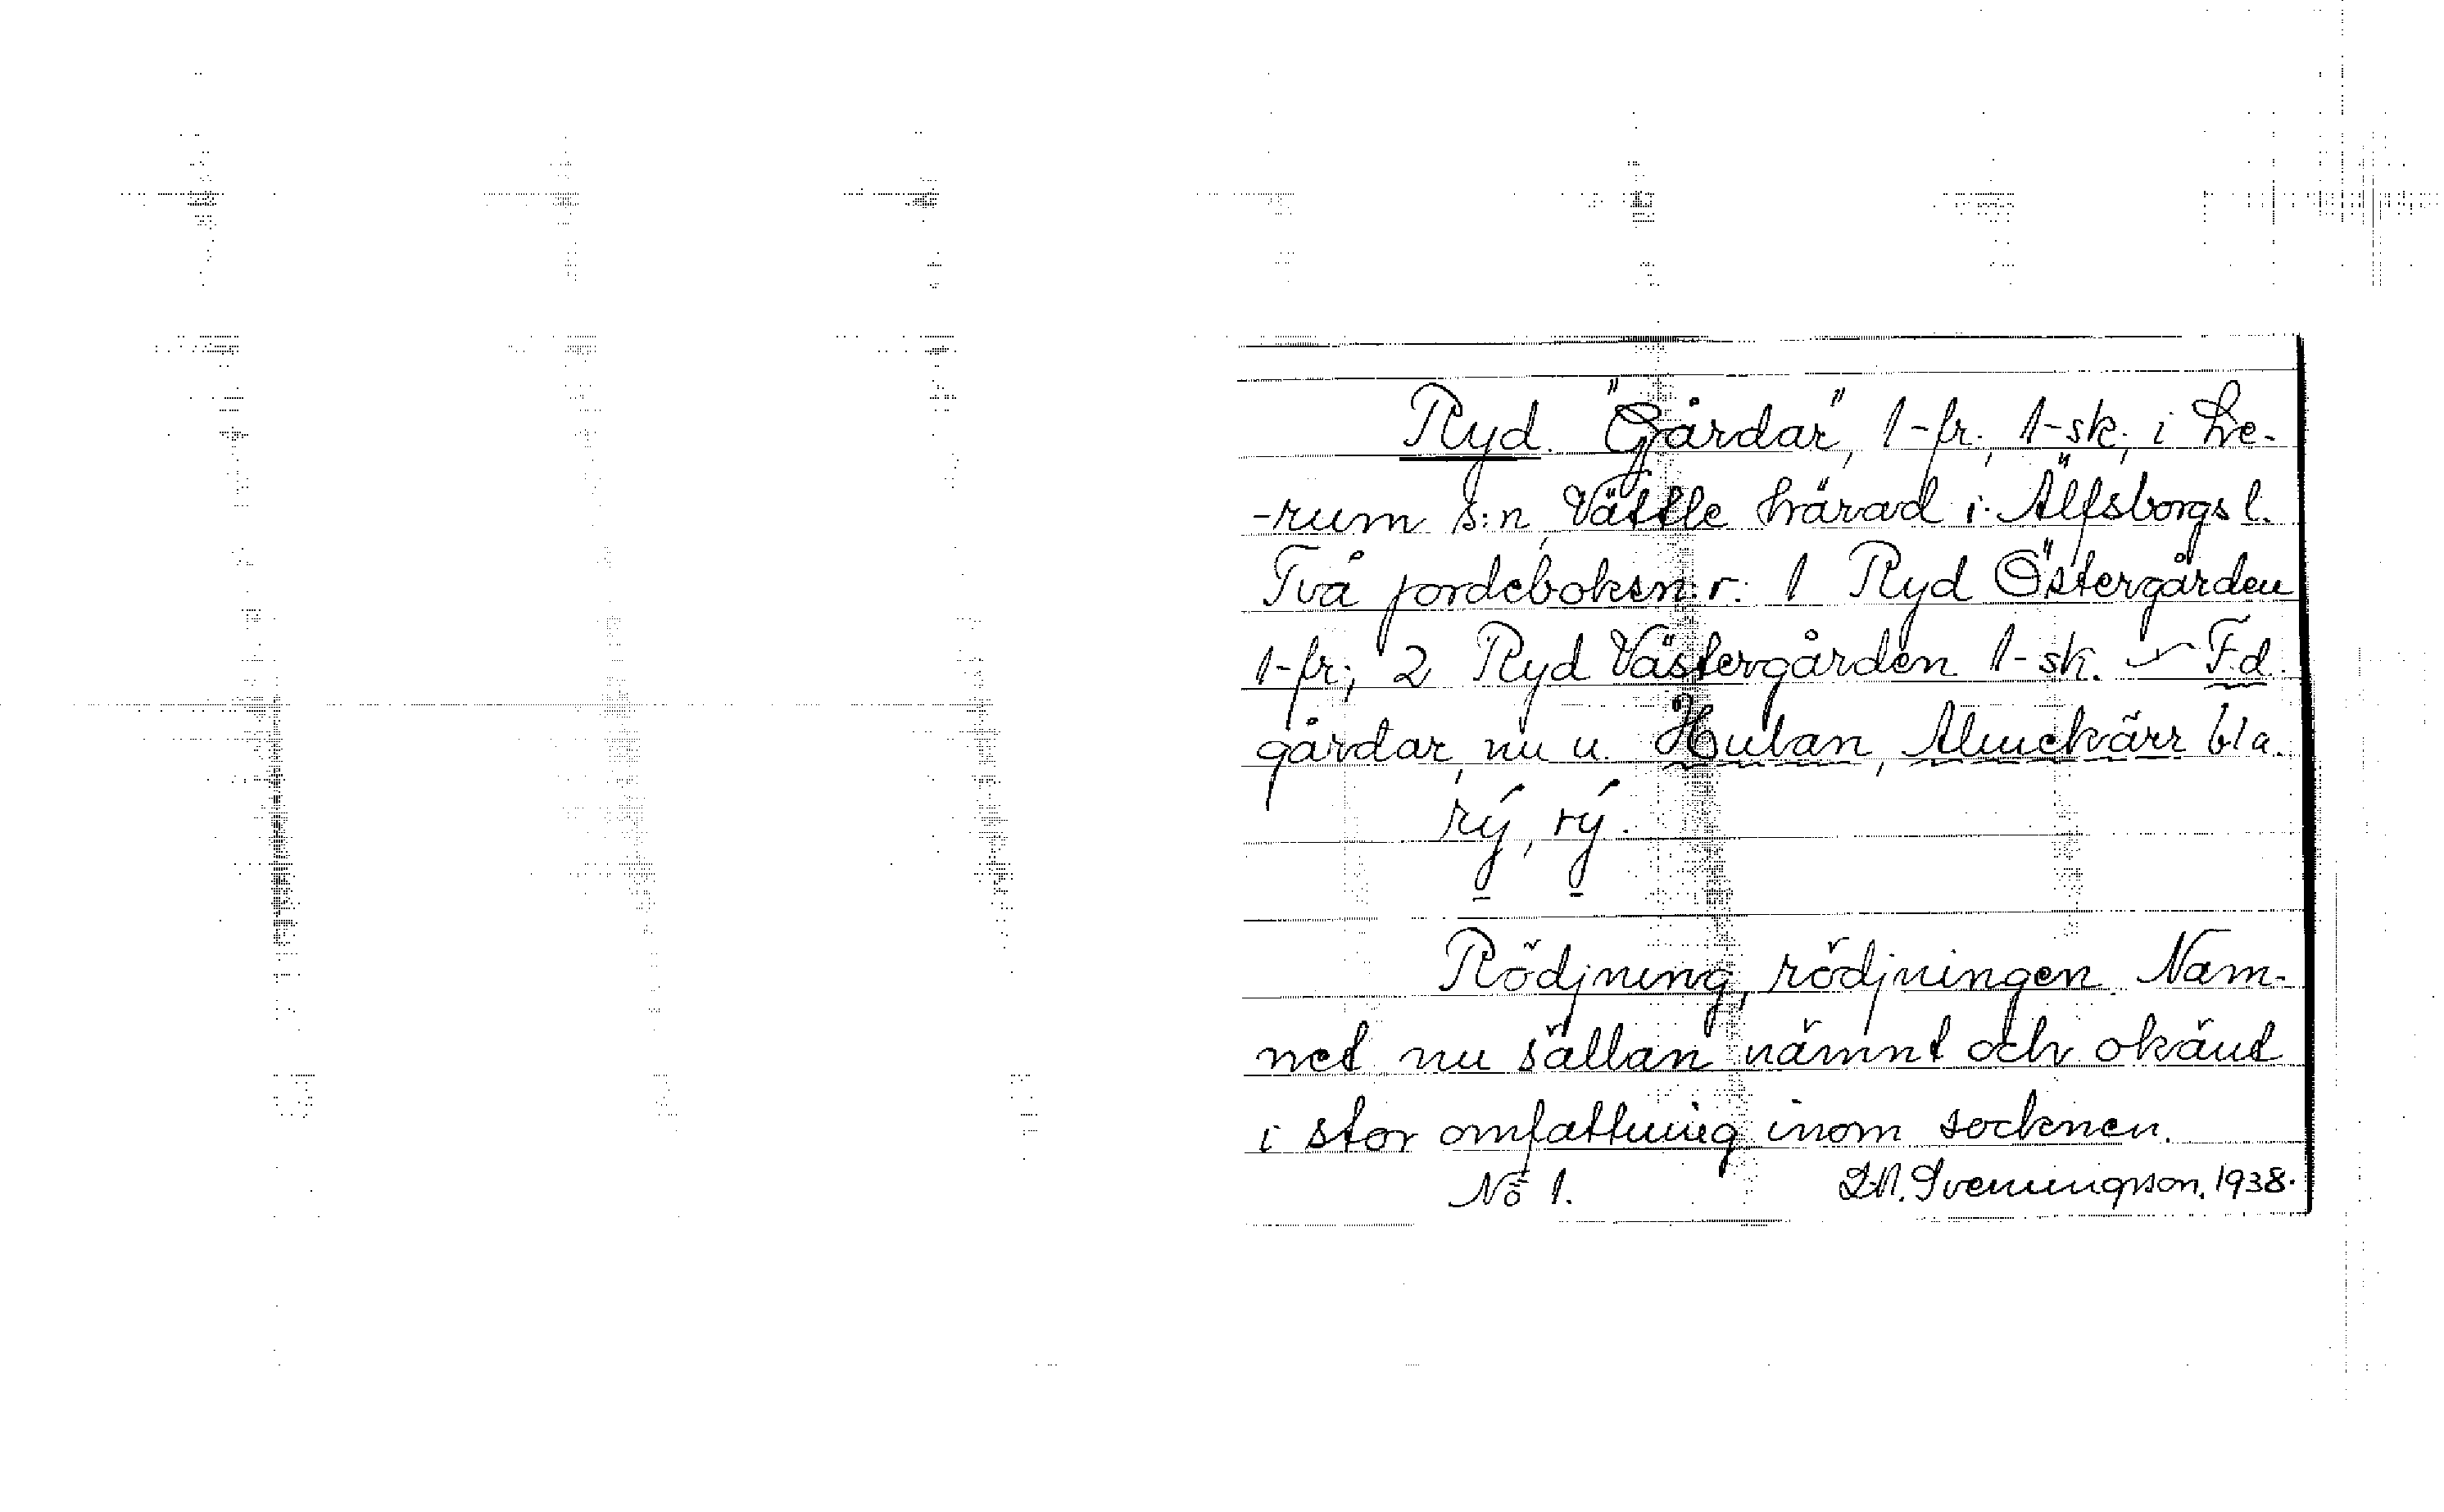 Ryd. "Gårdar", 1-fr., 1-sk., i Le-
-rum s:n, Vättle härad i Älfsborgs l.
Två jordeboksn:r: 1 Ryd Östergården
1-fr; 2 Ryd Västergården 1-sk. ~ F.d.
gårdar, nu u. Hulan, Almekärr bl a.
rý, rý.
Rödjning, rödjningen. Nam-
net nu sällan nämnt och okänt
i stor omfattning inom socknen.
No 1. Svenningson. 1938.